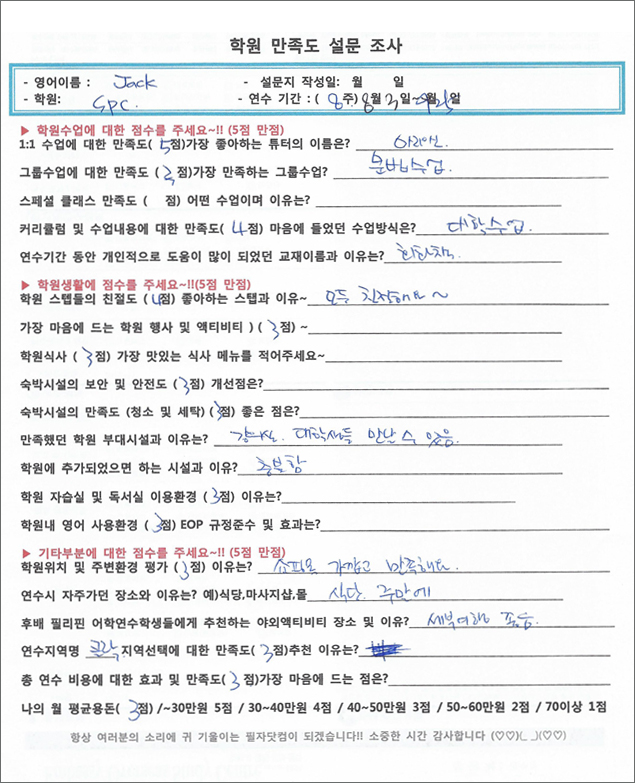 학원 만족도 설문 조사
- 영어이름 : Jack - 설문지 작성일: 월 일
- 학원: GPC. - 연수 기간 : ( 8주) 8월 일~ 월 일
▶ 학원수업에 대한 점수를 주세요~!! (5점 만점)
1:1 수업에 대한 만족도( 5점)가장 좋아하는 튜터의 이름은?
그룹수업에 대한 만족도 ( 점)가장 만족하는 그룹수업? 문법수업.
스페셜 클래스 만족도 ( 점) 어떤 수업이며 이유는?
커리큘럼 및 수업내용에 대한 만족도( 4점) 마음에 들었던 수업방식은? 대학수업.
연수기간 동안 개인적으로 도움이 많이 되었던 교재이름과 이유는?
▶ 학원생활에 점수를 주세요~!!(5점 만점)
학원 스텝들의 친절도 ( 4점) 좋아하는 스탭과 이유~ 모두 친절해요~
가장 마음에 드는 학원 행사 및 액티비티 ) ( 3점) ~
학원식사 ( 3점) 가장 맛있는 식사 메뉴를 적어주세요~
숙박시설의 보안 및 안전도 ( 3점) 개선점은?
숙박시설의 만족도 (청소 및 세탁) ( 3점) 좋은 점은?
만족했던 학원 부대시설과 이유는? 강의실. 대학생들 만날 수 있음.
학원에 추가되었으면 하는 시설과 이유? 충분함
학원 자습실 및 독서실 이용환경 ( 3점) 이유는?
학원내 영어 사용환경 ( 3점) EOP 규정준수 및 효과는?
▶ 기타부분에 대한 점수를 주세요~!! (5점 만점)
학원위치 및 주변환경 평가 ( 3점) 이유는? 쇼핑몰 가깝고 만족해요.
연수시 자주가던 장소와 이유는? 예)식당,마사지샵,몰 식당. 주말에
후배 필리핀 어학연수학생들에게 추천하는 야외액티비티 장소 및 이유? 세부여행 좋음.
연수지역명 클락 지역선택에 대한 만족도( 3점)추천 이유는?
총 연수 비용에 대한 효과 및 만족도( 3점)가장 마음에 드는 점은?
나의 월 평균용돈( 3점) /~30만원 5점 / 30~40만원 4점 / 40~50만원 3점 / 50~60만원 2점 / 70이상 1점
항상 여러분의 소리에 귀 기울이는 필자닷컴이 되겠습니다!! 소중한 시간 감사합니다 (♡♡)(_ _)(♡♡)